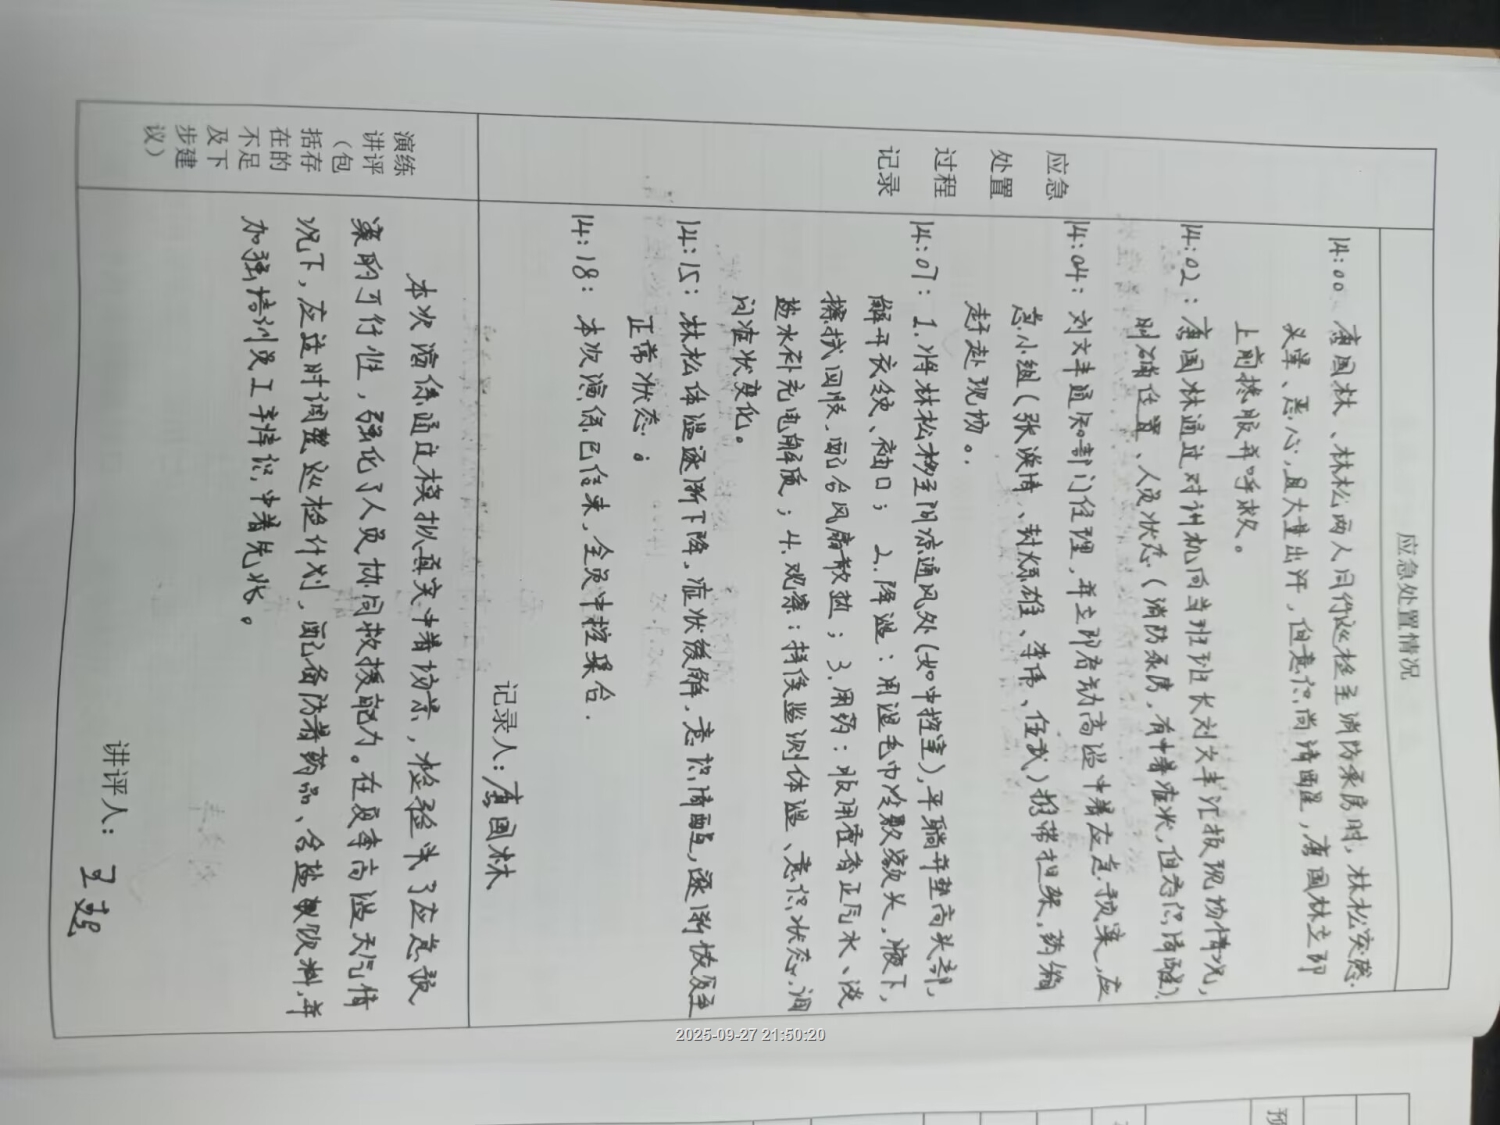 应急处置情况
应急
处置
过程
记录
14:00 唐国林、林松两人同行巡检至消防泵房时，林松突感
头晕、恶心，且大量出汗，但意识尚清醒，唐国林立即
上前搀服并呼救。
14:02：唐国林通过对讲机向当班班长刘文丰汇报现场情况，
明确位置、人员状态（消防泵房，有中暑症状，但意识清醒）。
14:04：刘文丰通知部门经理，并立即启动高温中暑应急预案，应
急小组（张 、封 雄、李伟、任武）携带担架，药箱
赶赴现场。
14:07：1.将林松移至阴凉通风处（如中控室），平躺并垫高头部，
解开衣领、袖口；2.降温：用湿毛巾冷敷额头，腋下，
擦拭四肢，配合风扇散热；3.用药：服用藿香正气水、淡
盐水补充电解质；4.观察：持续监测体温、意识状态，询
问症状变化。
14:15：林松体温逐渐下降，症状缓解，意识清醒，逐渐恢复至
正常状态。
14:18：本次演练已结束，全员中控集合.
记录人：唐国林
演练
讲评
（包
括存
在的
不足
及下
步建
议）
本次演练通过模拟真实中暑场景，检验来了应急预
案的可行性，强化了人员协同救援能力。在夏季高温天气情
况下，应适时调整巡检计划，配备防暑药品、含盐饮料，并
加强培训员工辨识中暑先兆。
讲评人：
2025-09-27 21:50:20
预